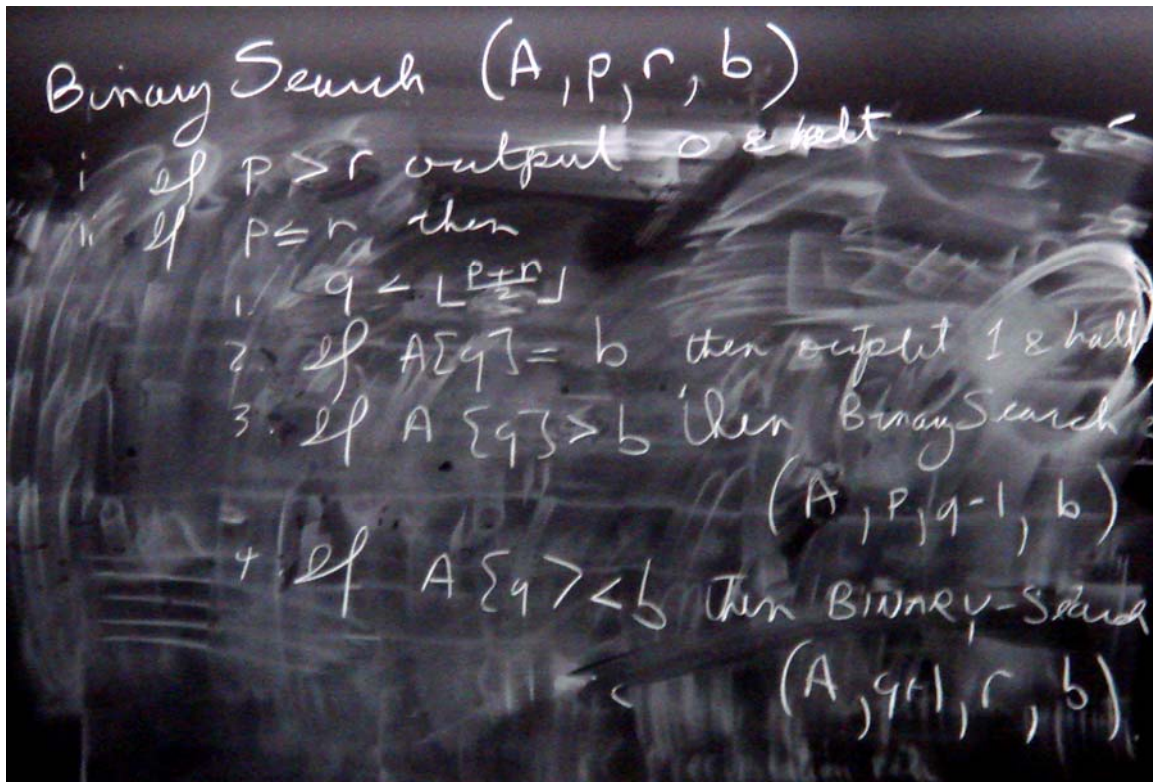 Binary Search (A, p, r, b)
i If p > r output 0 & halt.
ii If p ≤ r then
1. q ← ⌊(p+r)/2⌋
2. If A[q] = b then output 1 & halt
3. If A[q] > b then Binary Search
(A, p, q-1, b)
4. If A[q] < b then BINARY-Search
(A, q+1, r, b)